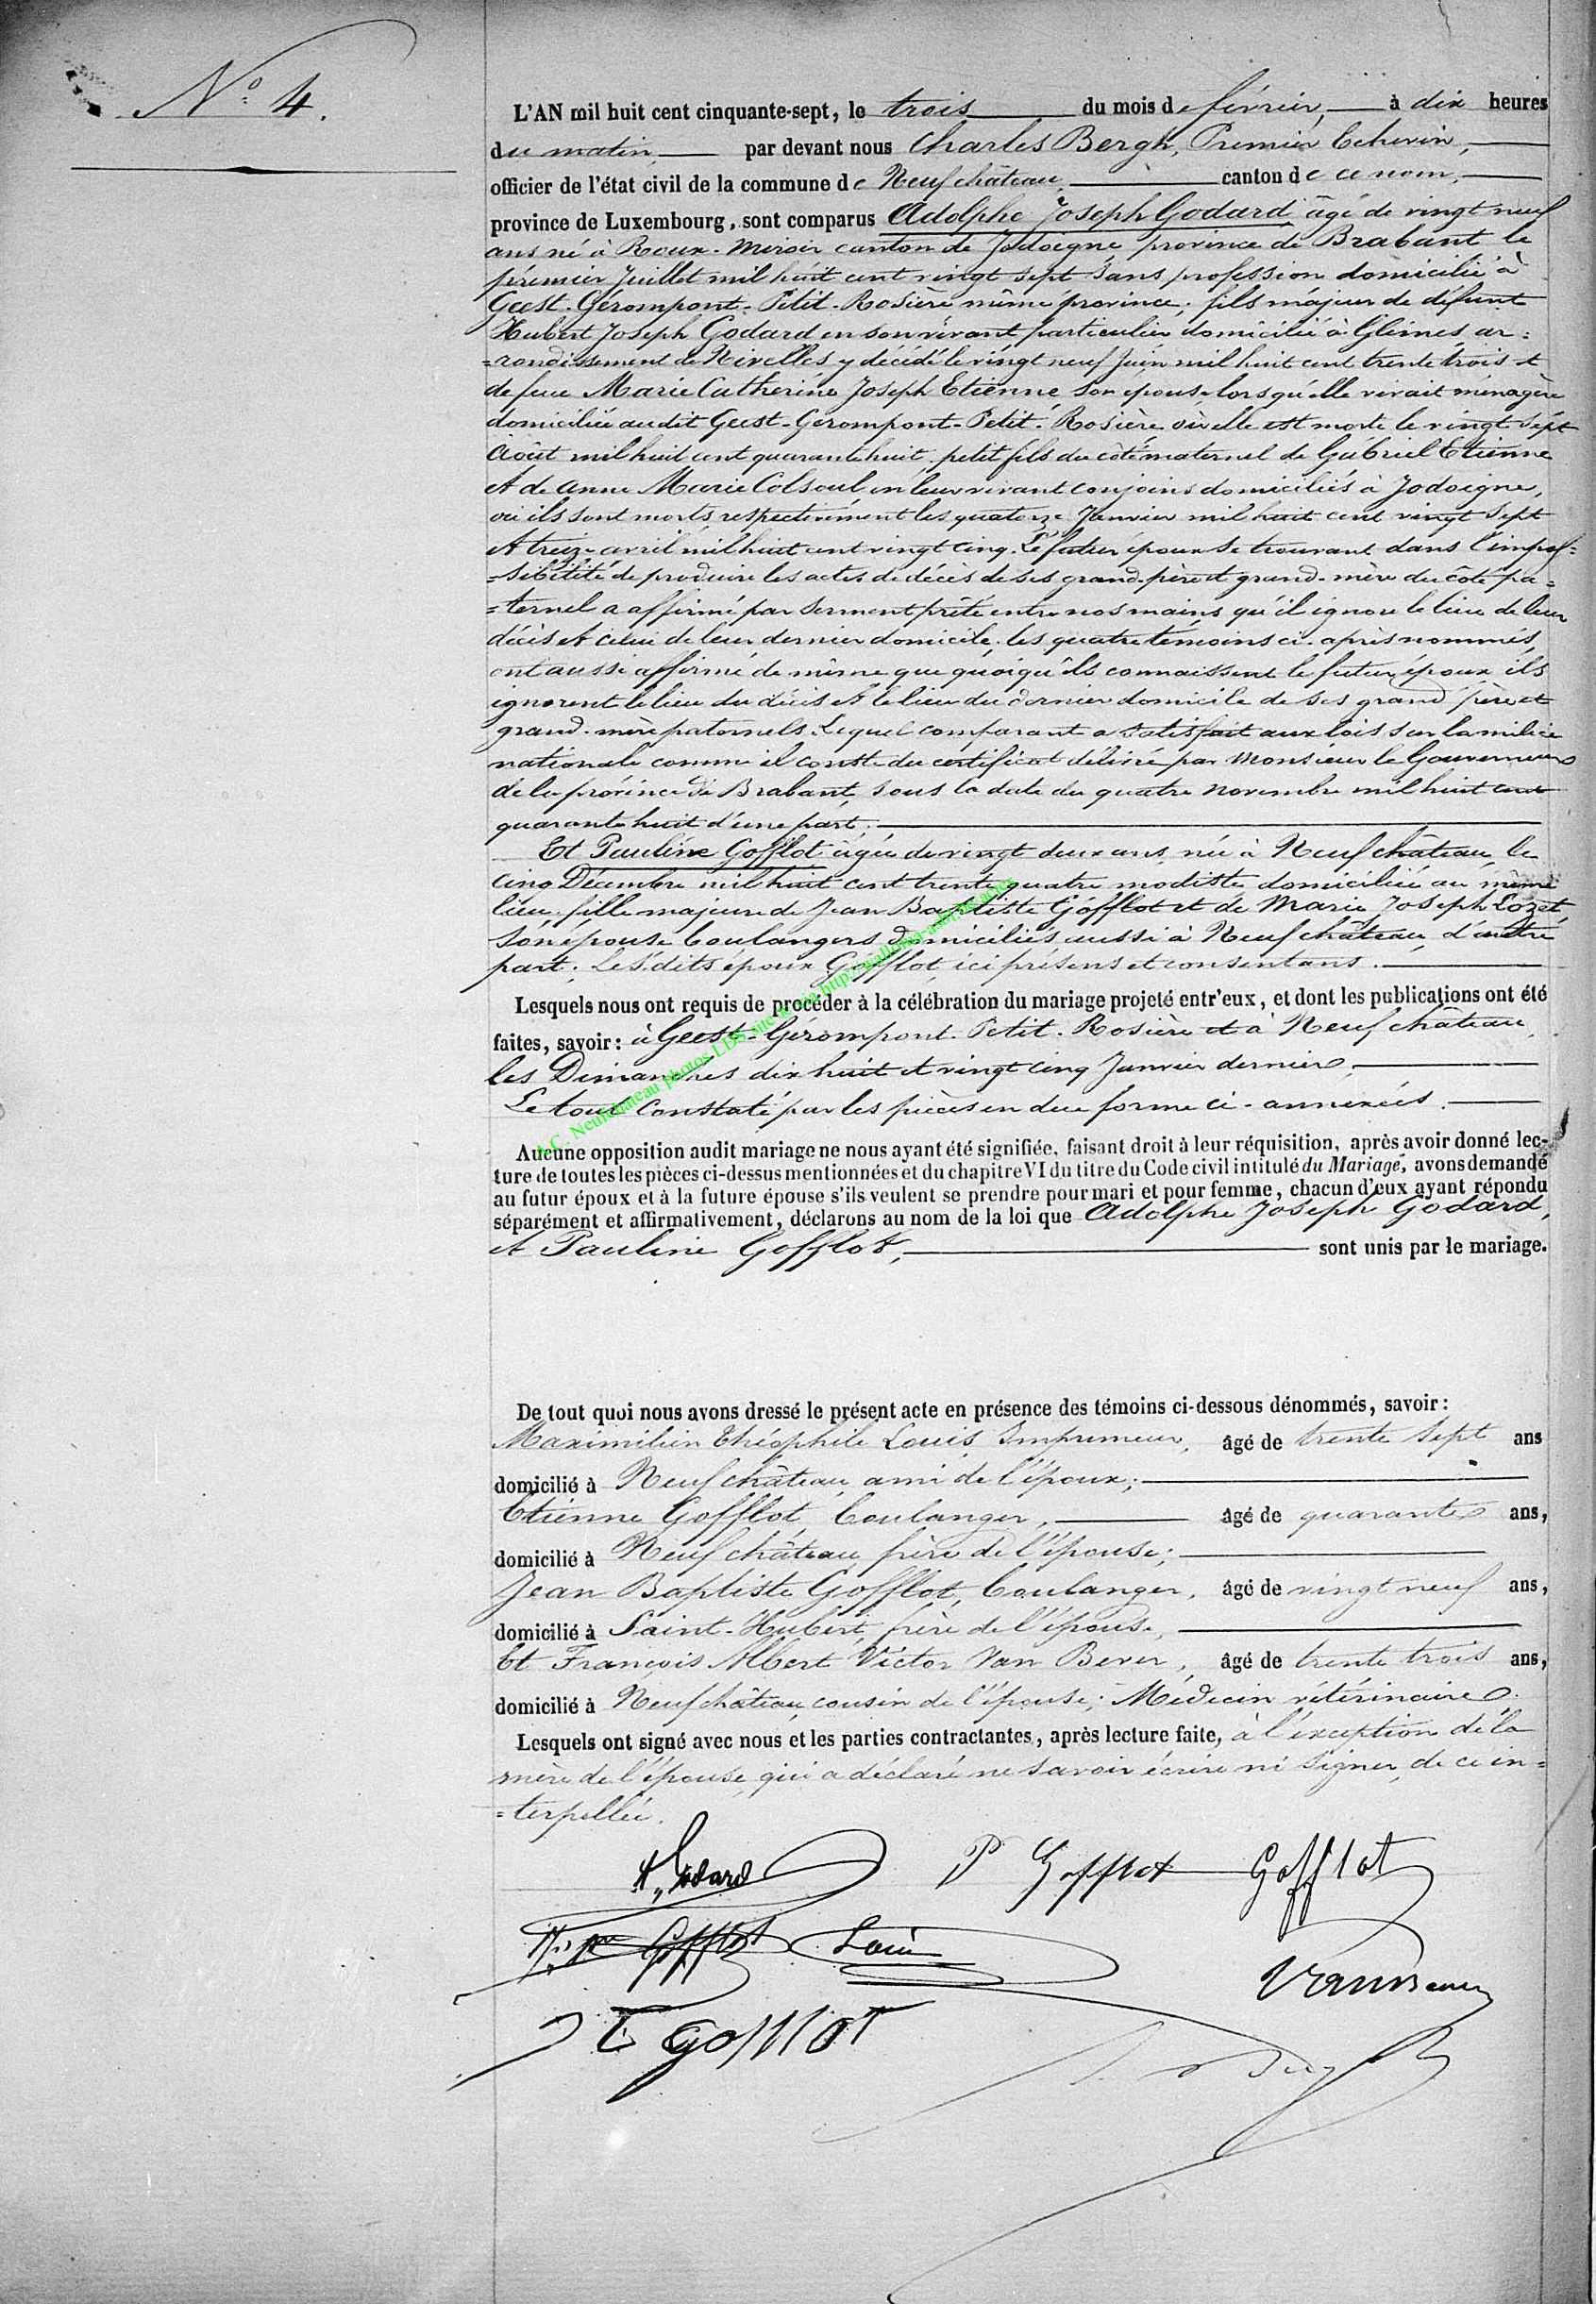 N° 4.
L'AN mil huit cent cinquante-sept, le trois du mois de février, à dix heures
du matin, par devant nous Charles Bergh, Premier Echevin,
officier de l'état civil de la commune de Neufchâteau, canton de ce nom,
province de Luxembourg, sont comparus Adolphe Joseph Godard âgé de vingt neuf
ans né à Roux-Miroir canton de Jodoigne, province de Brabant le
premier Juillet mil huit cent vingt sept sans profession domicilié à
Geest-Gérompont-Petit-Rosière même province, fils majeur de défunt
Hubert Joseph Godard en son vivant particulier domicilié à Glimes, ar=
=rondissement de Nivelles y décédé le vingt neuf Juin mil huit cent trente trois et
de feue Marie Catherine Joseph Etienne son épouse lorsqu'elle vivait ménagère
domiciliée audit Geest-Gérompont-Petit-Rosière où elle est morte le vingt sept
Août mil huit cent quarante huit, petit fils du côté maternel de Gabriel Etienne
et de Anne Marie Colsoul en leur vivant conjoins domiciliés à Jodoigne,
où ils sont morts respectivement les quatorze Janvier mil huit cent vingt sept
et treize avril mil huit cent vingt cinq. Le futur époux se trouvant dans l'impos=
=sibilité de produire les actes de décès de ses grand-père et grand-mère du côté pa=
=ternel a affirmé par serment prêté entre nos mains qu'il ignore le lieu de leur
décès et celui de leur dernier domicile, les quatre témoins ci-après nommés,
ont aussi affirmé de même que quoiqu'ils connaissent le futur époux ils
ignorent le lieu du décès et le lieu du dernier domicile de ses grand père et
grand-mère paternels. Lequel comparant a satisfait aux lois sur la milice
nationale comme il conste du certificat délivré par Monsieur le Gouverneur
de la province de Brabant, sous la date du quatre novembre mil huit cent
quarante huit d'une part.
Et Pauline Gofflot âgée de vingt deux ans, née à Neufchâteau, le
cinq Décembre mil huit cent trente quatre modiste domiciliée au même
lieu, fille majeure de Jean Baptiste Gofflot et de Marie Joseph Lozet,
son épouse boulangers domiciliés aussi à Neufchâteau d'autre
part. Les dits époux Gofflot ici présens et consentans.
Lesquels nous ont requis de procéder à la célébration du mariage projeté entr'eux, et dont les publications ont été
faites, savoir: à Geest-Gérompont-Petit-Rosière et à Neufchâteau
les Dimanches dix huit et vingt cinq Janvier dernier.
Le tout constaté par les pièces en due forme ci-annexées.
A.C. Neufchateau photos LDS
Aucune opposition audit mariage ne nous ayant été signifiée, faisant droit à leur réquisition, après avoir donné lec-
ture de toutes les pièces ci-dessus mentionnées et du chapitre VI du titre du Code civil intitulé du Mariage, avons demandé
au futur époux et à la future épouse s'ils veulent se prendre pour mari et pour femme, chacun d'eux ayant répondu
séparément et affirmativement, déclarons au nom de la loi que Adolphe Joseph Godard,
et Pauline Gofflot, sont unis par le mariage.
De tout quoi nous avons dressé le présent acte en présence des témoins ci-dessous dénommés, savoir:
Maximilien Théophile Louis, Imprimeur, âgé de trente sept ans
domicilié à Neufchâteau ami de l'époux;
Etienne Gofflot, boulanger, âgé de quarante ans,
domicilié à Neufchâteau frère de l'épouse;
Jean Baptiste Gofflot, boulanger, âgé de vingt neuf ans,
domicilié à Saint-Hubert, frère de l'épouse,
Et François Albert Victor Van Bever, âgé de trente trois ans,
domicilié à Neufchâteau, cousin de l'épouse; Médecin vétérinaire.
Lesquels ont signé avec nous et les parties contractantes, après lecture faite, à l'exception de la
mère de l'épouse, qui a déclaré ne savoir écrire ni signer, de ce in=
=terpellée.
A. Godard P Gofflot Gofflot
Gofflot Louis
E Gofflot